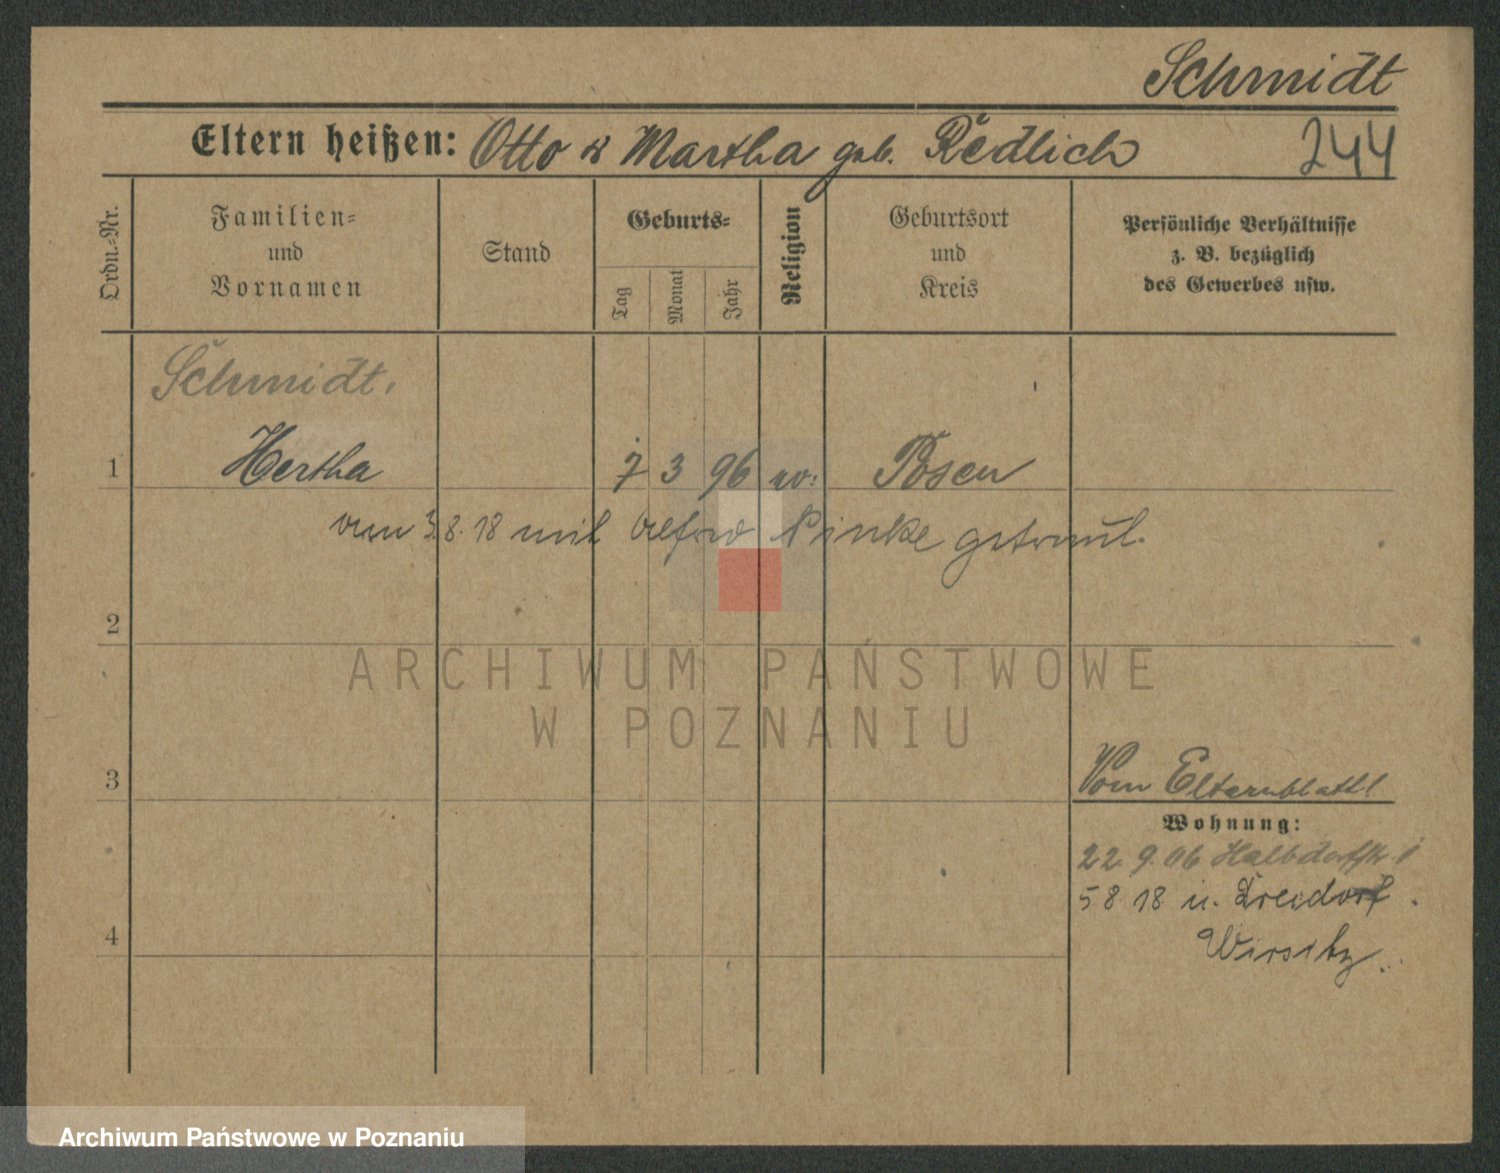 Schmidt
Eltern heißen: Otto & Martha geb. Redlich
244
Ordn.=Nr.
Familien=
und
Vornamen
Stand
Geburts=
Tag
Monat
Jahr
Religion
Geburtsort
und
Kreis
Persönliche Verhältnisse
z. B. bezüglich
des Gewerbes usw.
Schmidt.
1 Hertha 7 3 96 Posen
3.8.18 mit Alfred Pinke getraut.
2
ARCHIWUM PAŃSTWOWE
W POZNANIU
3
Vom Elternblatt!
Wohnung:
22.9.06 Halbdorfstr.
5 8 18 n. Dreidorf.
4
Wirsitz.
Archiwum Państwowe w Poznaniu